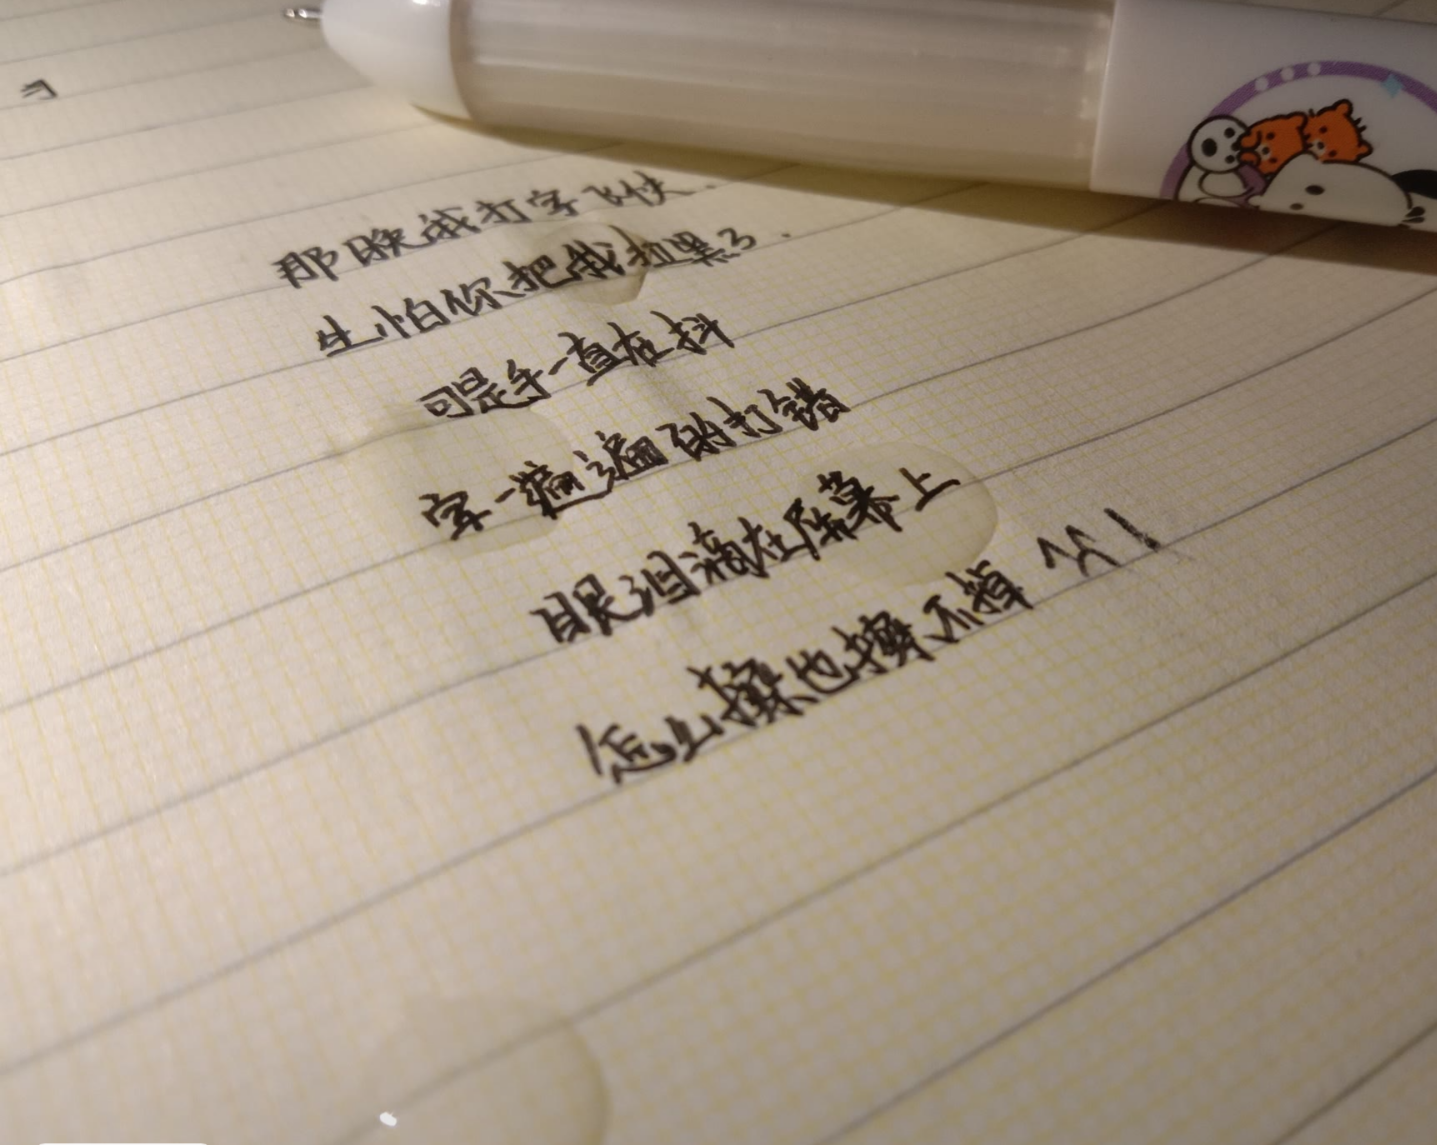 那晚我打字飞快.
生怕你把我拉黑了.
可是手一直在抖
字一遍遍的打错
眼泪滴在屏幕上
怎么擦也擦不掉